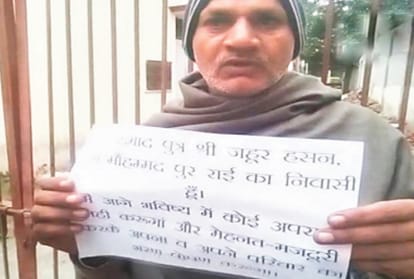 पुत्र श्री जहूर हसन,
मौहम्मद पुर राई का निवासी
हूँ।
मैं आगे भविष्य में कोई अपराध
नहीं करूगां और मेहनत-मजदूरी
करके अपना व अपने परिवार का
भरण पोषण करूगा।